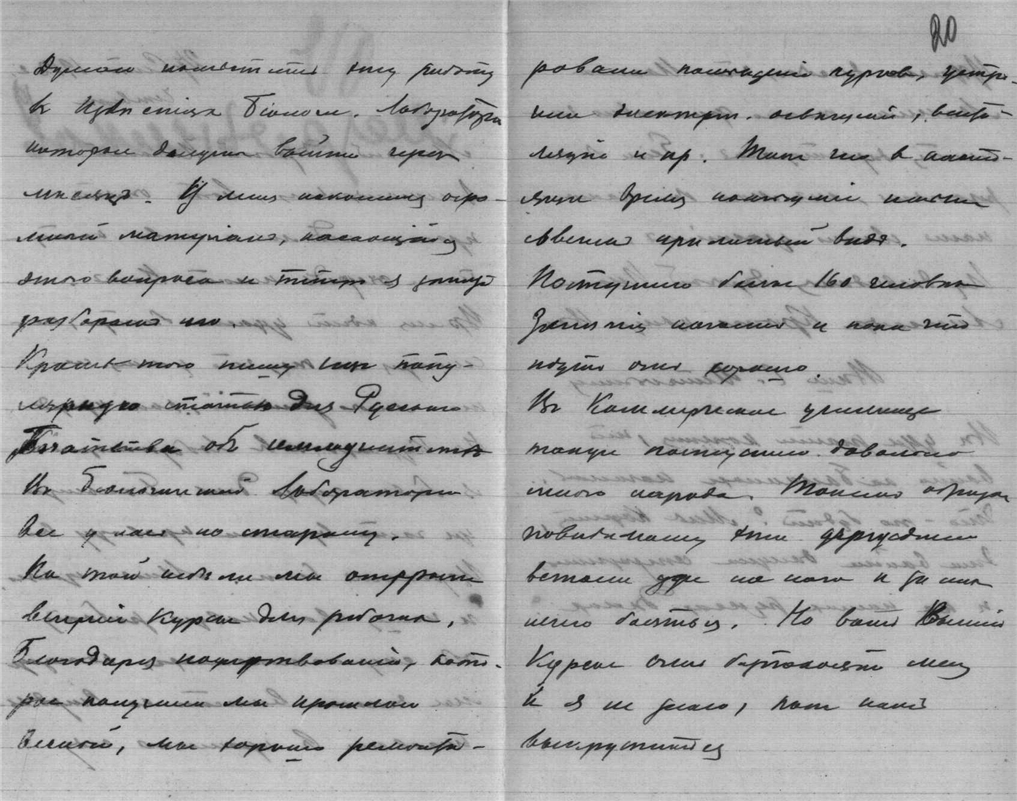 Думаю поместить эту работу
в Известiях Бiолог. Лабораторiи
которая должна выйти через
месяцъ. У меня накопился огро-
мный матерiалъ, касающiйся
этого вопроса и теперь я
разбираю его.
Кромѣ того пишу попу-
лярную статью для Русскаго
Богатства об
Въ Бiологической Лабораторiи
все у насъ по старому.
На той недѣли мы открыли
вечернiе Курсы для рабочих.
Благодаря пожертвованiю, кото-
рое получили мы прошлой
весной, мы хорошо ремонти-
20
ровали помещенiе курсовъ, устро-
или электрич. освѣщенiе, венти-
ляцiю и пр. Такъ что в насто-
ящее время помещенiе имѣетъ
приличный видъ.
Поступило более 160 человѣкъ
Занятiя начались и пока что
идутъ очень хорошо.
Въ Коммерческое училище
также поступило довольно
много народа. Такимъ образом
повидимому эти учрежденiя
встали уже на ноги и за них
нечего бояться. Но вотъ Высшiе
Курсы очень безпокоятъ меня
и я не знаю, какъ они
выкрутятся